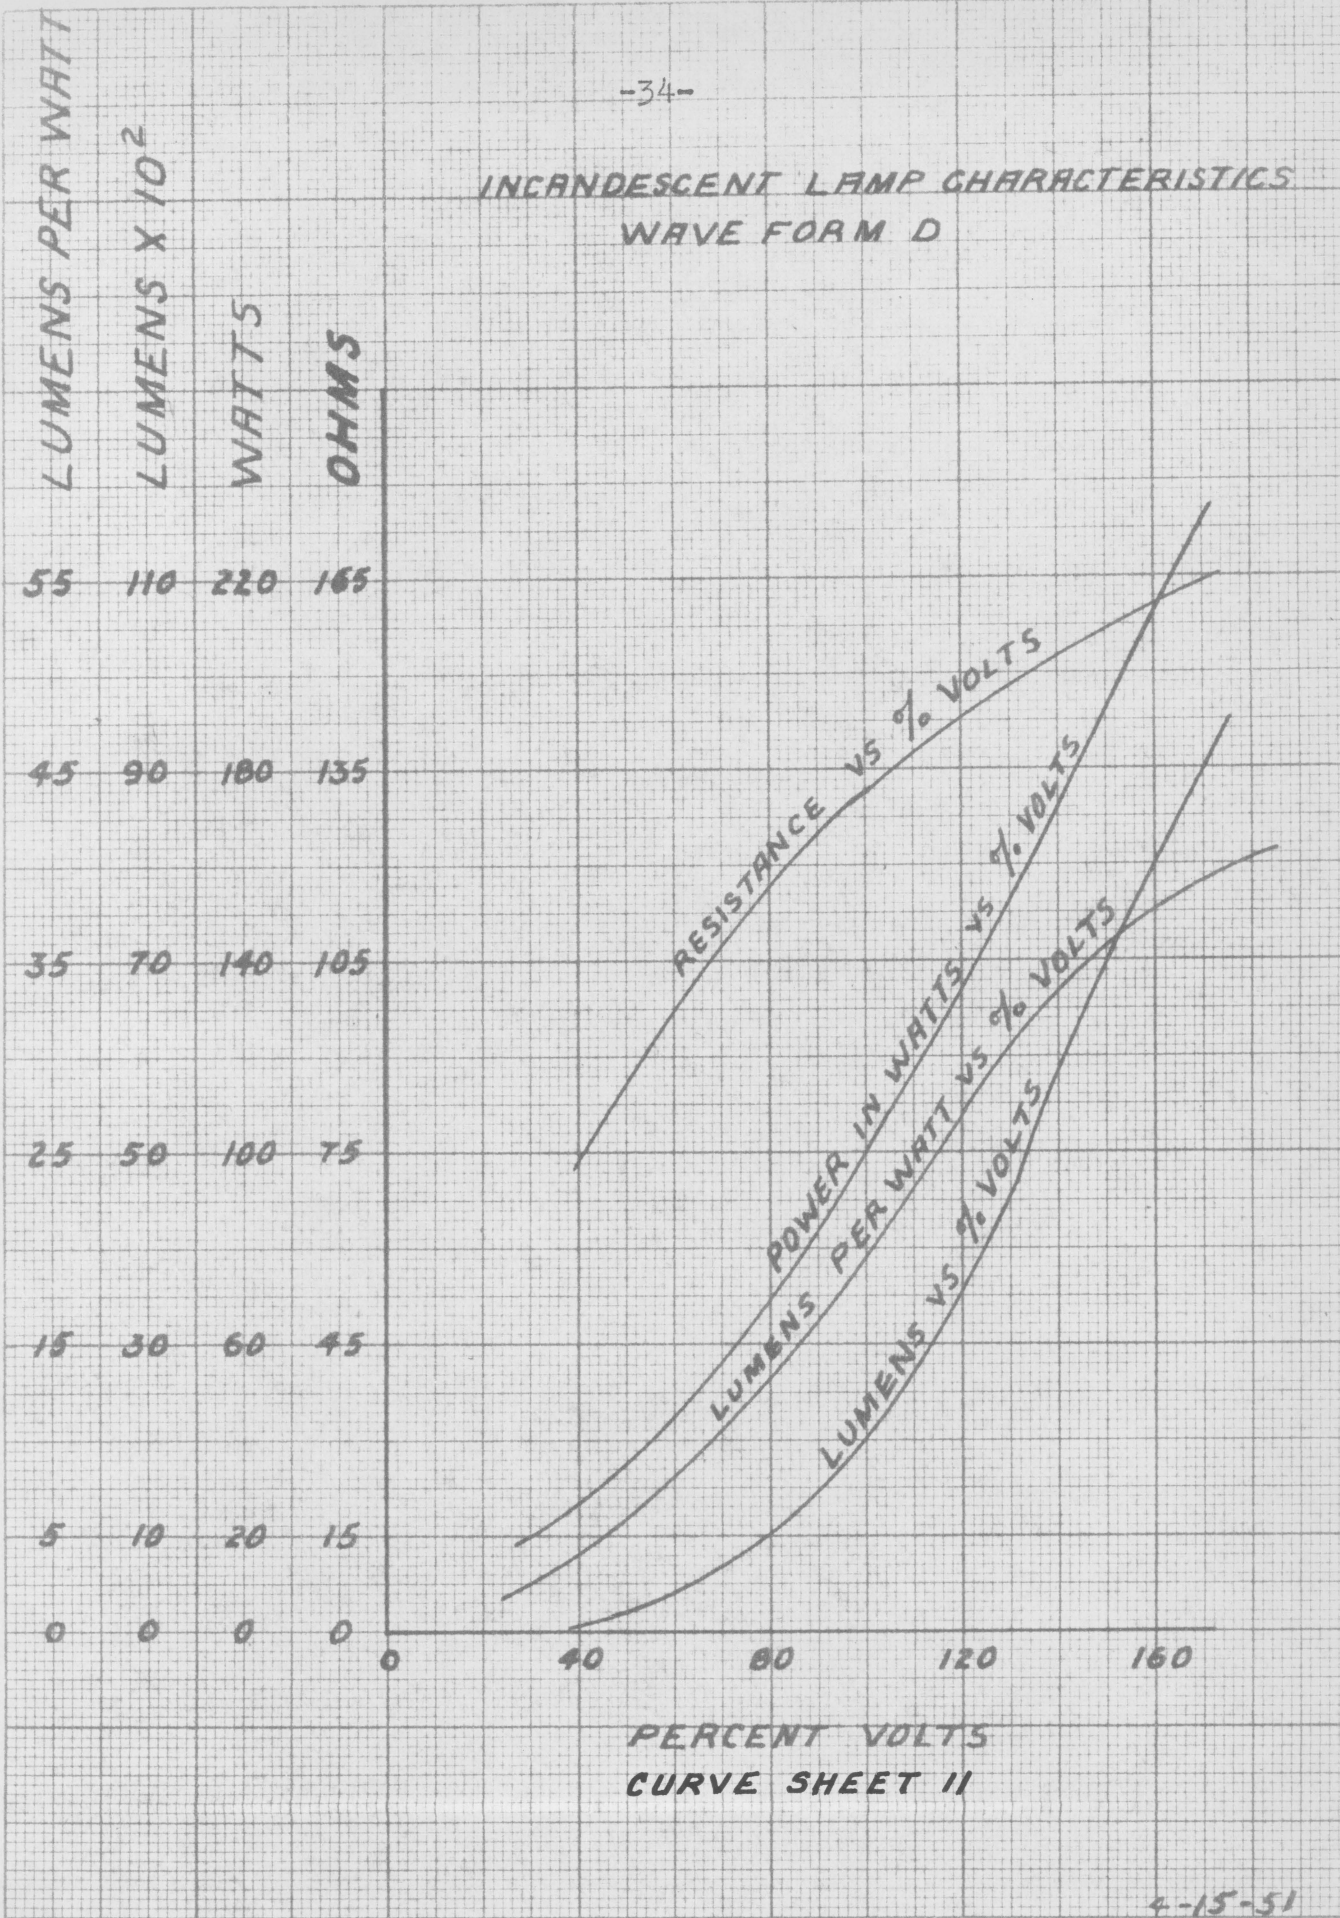 -34-
INCANDESCENT LAMP CHARACTERISTICS
WAVE FORM D
LUMENS PER WATT
LUMENS X 10²
WATTS
OHMS
55 110 220 165
45 90 180 135
35 70 140 105
25 50 100 75
15 30 60 45
5 10 20 15
0 0 0 0
RESISTANCE VS % VOLTS
POWER IN WATTS VS % VOLTS
LUMENS PER WATT VS % VOLTS
LUMENS VS % VOLTS
0 40 80 120 160
PERCENT VOLTS
CURVE SHEET 11
4-15-51